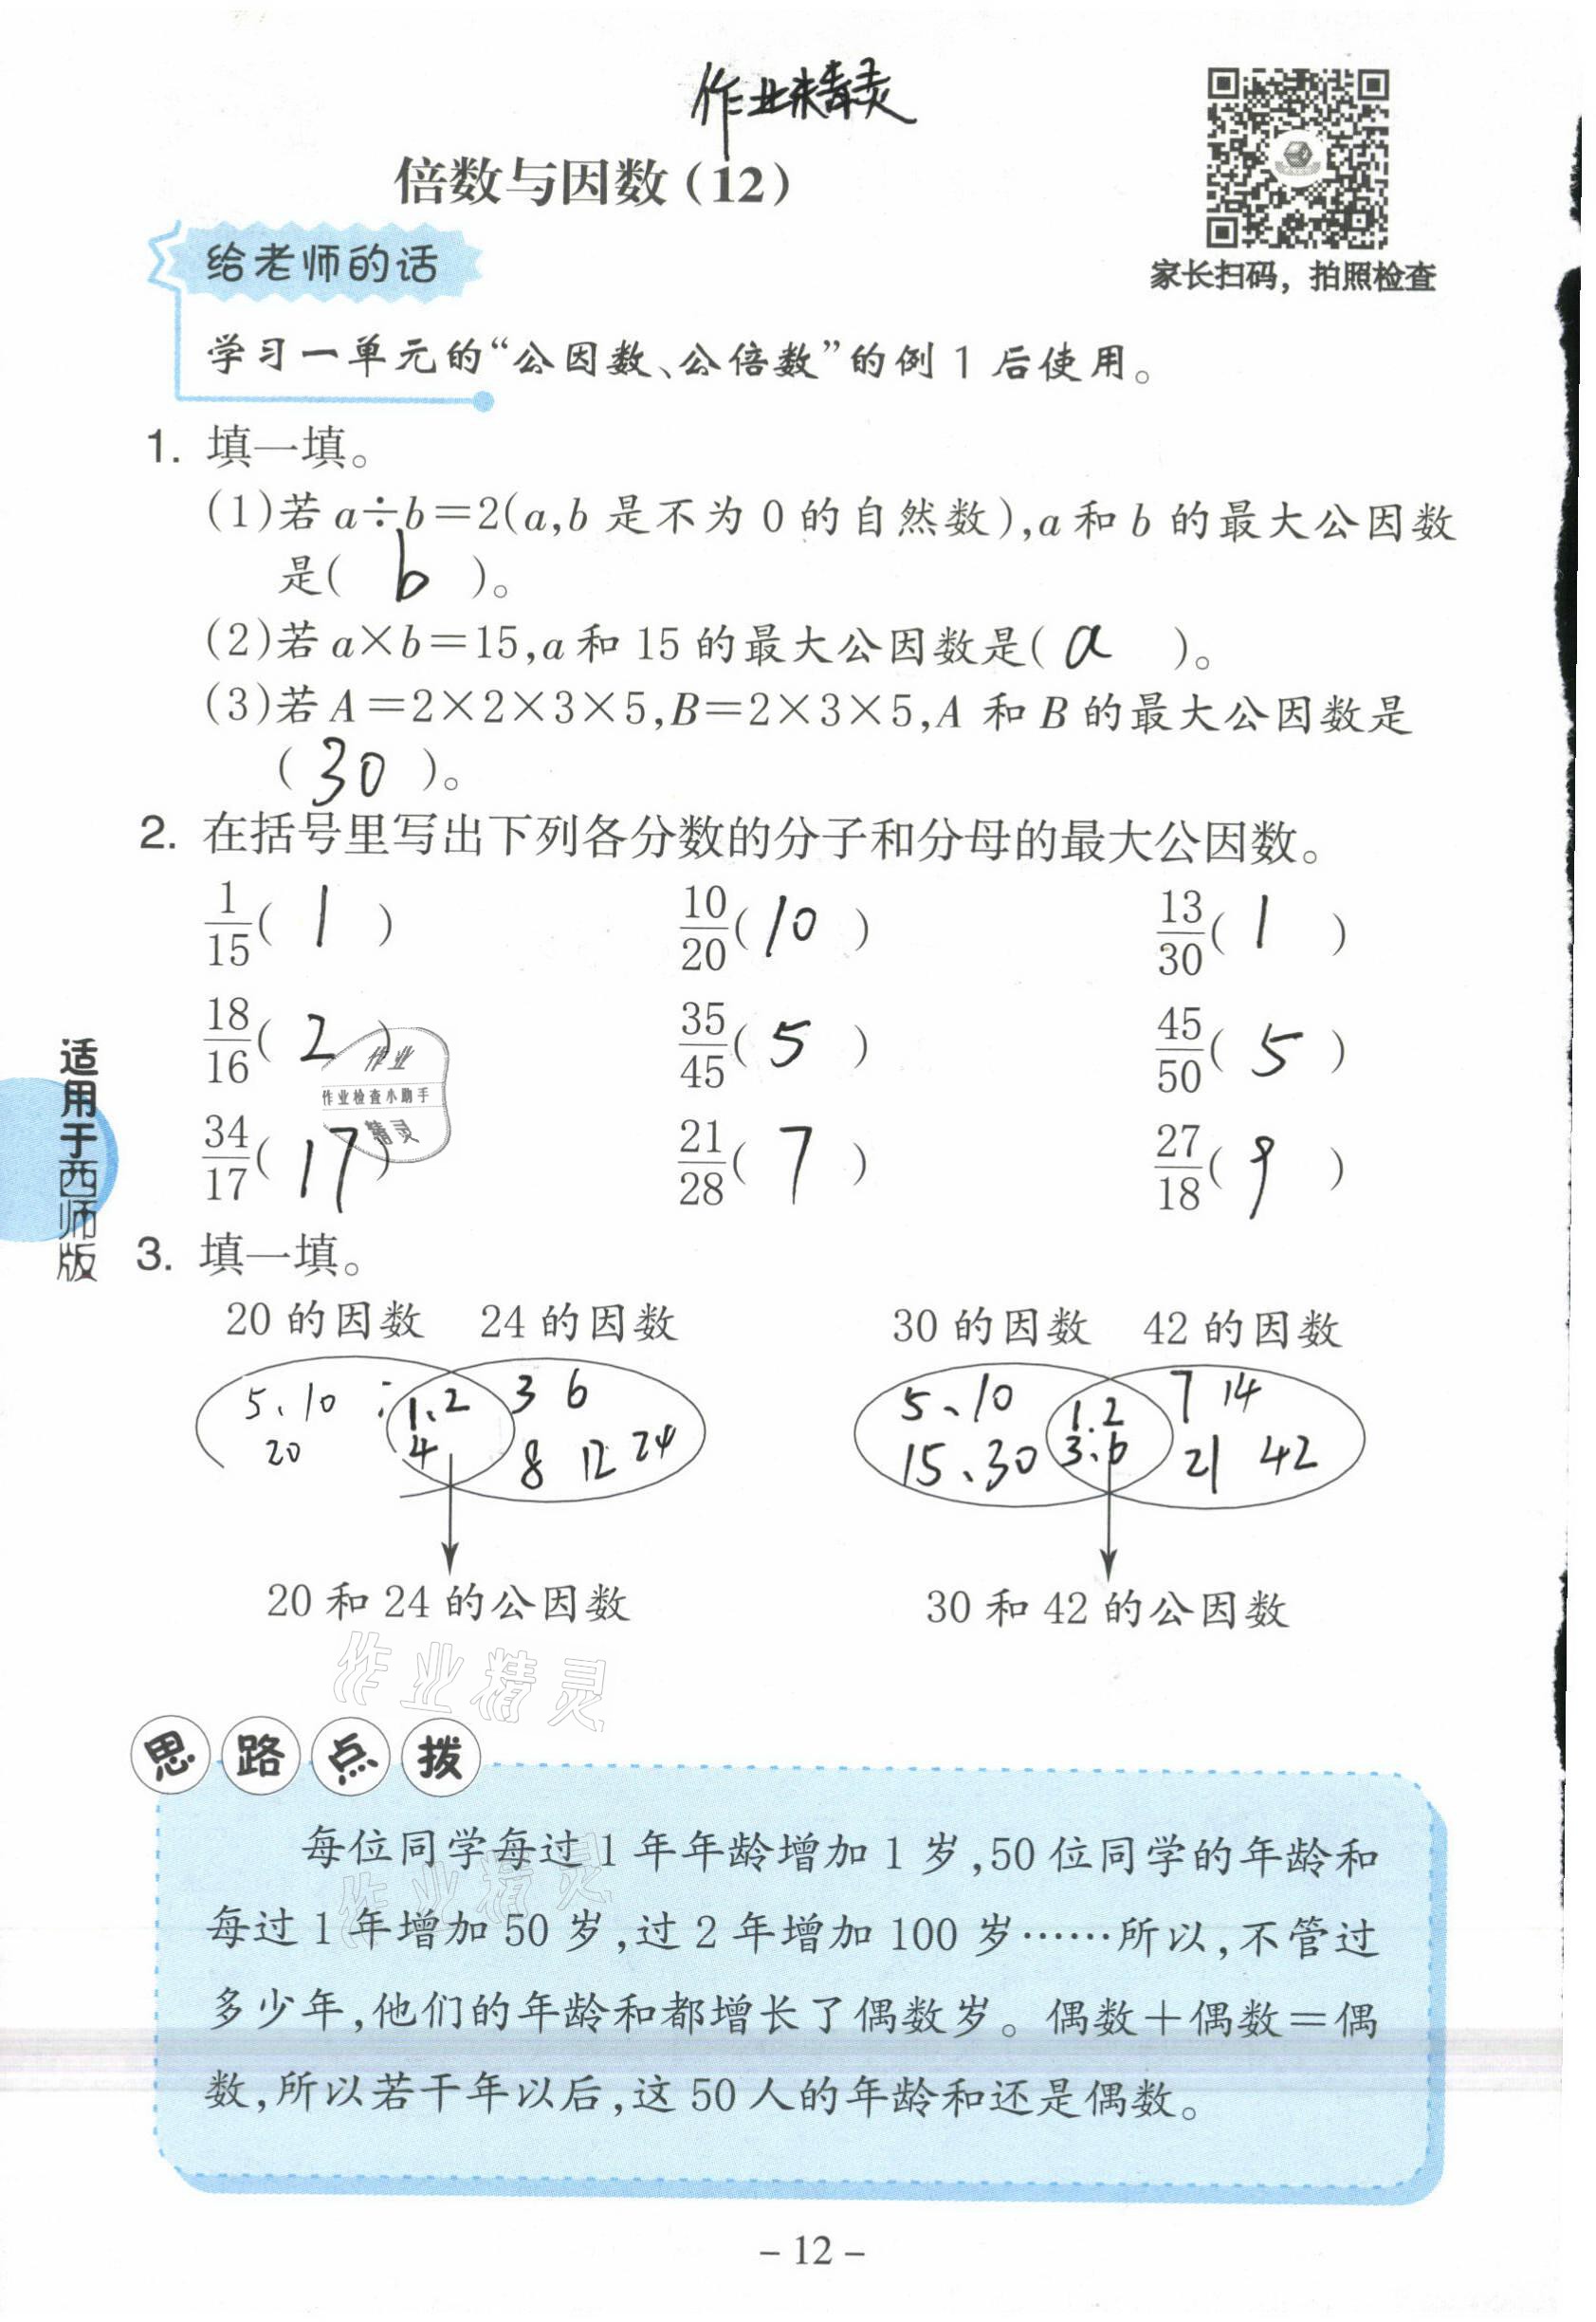 作业精灵
倍数与因数(12)
家长扫码，拍照检查
给老师的话
学习一单元的“公因数、公倍数”的例1后使用。
1. 填一填。
(1)若a÷b=2(a,b是不为0的自然数),a和b的最大公因数
是( b )。
(2)若a×b=15,a和15的最大公因数是( a )。
(3)若A=2×2×3×5,B=2×3×5,A和B的最大公因数是
( 30 )。
2. 在括号里写出下列各分数的分子和分母的最大公因数。
1/15( 1 ) 10/20( 10 ) 13/30( 1 )
18/16( 2 ) 35/45( 5 ) 45/50( 5 )
34/17( 17 ) 21/28( 7 ) 27/18( 9 )
作业
作业检查小助手
精灵
适用于西师版
3. 填一填。
20的因数 24的因数 30的因数 42的因数
5、10 1、2 3 6 5、10 1.2 7 14
20 4 8 12 24 15、30 3.6 21 42
20和24的公因数 30和42的公因数
作业精灵
思路点拨
每位同学每过1年年龄增加1岁,50位同学的年龄和
每过1年增加50岁,过2年增加100岁……所以,不管过
多少年,他们的年龄和都增长了偶数岁。偶数+偶数=偶
数,所以若干年以后,这50人的年龄和还是偶数。
作业精灵
- 12 -